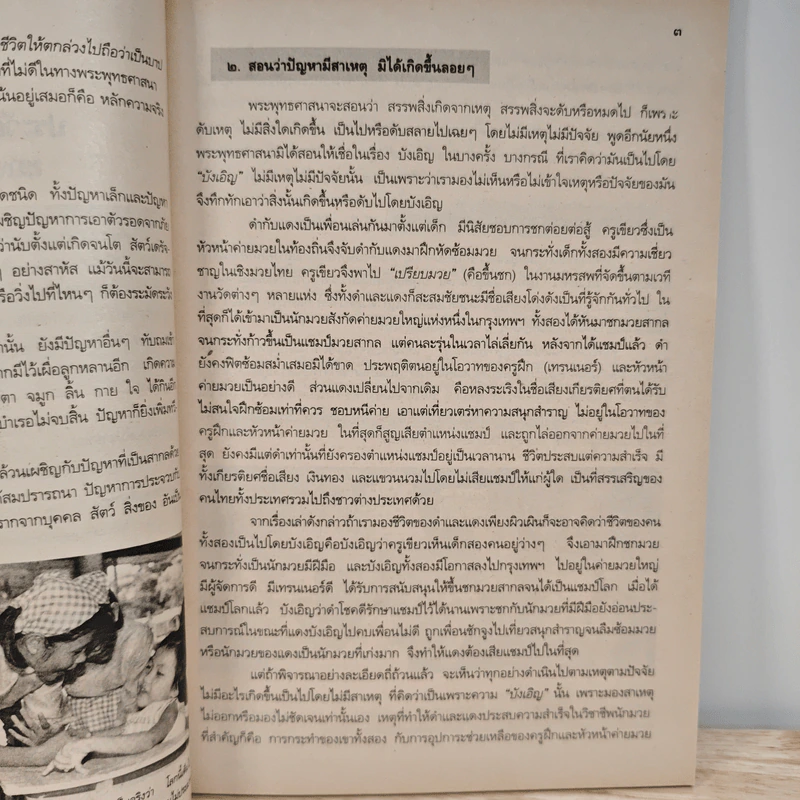 ชีวิตให้ตกล่วงไปถือว่าเป็นบาป
ที่ไม่ดีในทางพระพุทธศาสนา
นั้นอยู่เสมอก็คือ หลักความจริง
ดชนิด ทั้งปัญหาเล็กและปัญหา
ชิญปัญหาการเอาตัวรอดจากภัย
ว่านับตั้งแต่เกิดจนโต สัตว์เดรัจ-
ๆ อย่างสาหัส แม้วันนี้จะสามารถ
รือวิ่งไปที่ไหนๆ ก็ต้องระมัดระวัง
านั้น ยังมีปัญหาอื่นๆ ทับถมเข้า
ากมีไว้เผื่อลูกหลานอีก เกิดความ
ตา จมูก ลิ้น กาย ใจ ได้กินอีก
บำเรอไม่จบสิ้น ปัญหาก็ยิ่งเพิ่มทวี
ล้วนเผชิญกับปัญหาที่เป็นสากลด้วย
ด้สมปรารถนา ปัญหาการประจวบกับ
รากจากบุคคล สัตว์ สิ่งของ อันเป็น
๓
๒. สอนว่าปัญหามีสาเหตุ มิได้เกิดขึ้นลอยๆ
พระพุทธศาสนาจะสอนว่า สรรพสิ่งเกิดจากเหตุ สรรพสิ่งจะดับหรือหมดไป ก็เพราะ
ดับเหตุ ไม่มีสิ่งใดเกิดขึ้น เป็นไปหรือดับสลายไปเฉยๆ โดยไม่มีเหตุไม่มีปัจจัย พูดอีกนัยหนึ่ง
พระพุทธศาสนามิได้สอนให้เชื่อในเรื่อง บังเอิญ ในบางครั้ง บางกรณี ที่เราคิดว่ามันเป็นไปโดย
“บังเอิญ” ไม่มีเหตุไม่มีปัจจัยนั้น เป็นเพราะว่าเรามองไม่เห็นหรือไม่เข้าใจเหตุหรือปัจจัยของมัน
จึงทึกทักเอาว่าสิ่งนั้นเกิดขึ้นหรือดับไปโดยบังเอิญ
ดำกับแดงเป็นเพื่อนเล่นกันมาตั้งแต่เด็ก มีนิสัยชอบการชกต่อยต่อสู้ ครูเขียวซึ่งเป็น
หัวหน้าค่ายมวยในท้องถิ่นจึงจับดำกับแดงมาฝึกหัดซ้อมมวย จนกระทั่งเด็กทั้งสองมีความเชี่ยว
ชาญในเชิงมวยไทย ครูเขียวจึงพาไป “เปรียบมวย” (คือขึ้นชก) ในงานมหรสพที่จัดขึ้นตามเวที
งานวัดต่างๆ หลายแห่ง ซึ่งทั้งดำและแดงก็สะสมชัยชนะมีชื่อเสียงโด่งดังเป็นที่รู้จักกันทั่วไป ใน
ที่สุดก็ได้เข้ามาเป็นนักมวยสังกัดค่ายมวยใหญ่แห่งหนึ่งในกรุงเทพฯ ทั้งสองได้หันมาชกมวยสากล
จนกระทั่งก้าวขึ้นเป็นแชมป์มวยสากล แต่คนละรุ่นในเวลาไล่เลี่ยกัน หลังจากได้แชมป์แล้ว ดำ
ยังคงฟิตซ้อมสม่ำเสมอมิได้ขาด ประพฤติตนอยู่ในโอวาทของครูฝึก (เทรนเนอร์) และหัวหน้า
ค่ายมวยเป็นอย่างดี ส่วนแดงเปลี่ยนไปจากเดิม คือหลงระเริงในชื่อเสียงเกียรติยศที่ตนได้รับ
ไม่สนใจฝึกซ้อมเท่าที่ควร ชอบหนีค่าย เอาแต่เที่ยวเตร่หาความสนุกสำราญ ไม่อยู่ในโอวาทของ
ครูฝึกและหัวหน้าค่ายมวย ในที่สุดก็สูญเสียตำแหน่งแชมป์ และถูกไล่ออกจากค่ายมวยไปในที่
สุด ยังคงมีแต่ดำเท่านั้นที่ยังครองตำแหน่งแชมป์อยู่เป็นเวลานาน ชีวิตประสบแต่ความสำเร็จ มี
ทั้งเกียรติยศชื่อเสียง เงินทอง และแขวนนวมไปโดยไม่เสียแชมป์ให้แก่ผู้ใด เป็นที่สรรเสริญของ
คนไทยทั้งประเทศรวมไปถึงชาวต่างประเทศด้วย
จากเรื่องเล่าดังกล่าวถ้าเรามองชีวิตของดำและแดงเพียงผิวเผินก็จะอาจคิดว่าชีวิตของคน
ทั้งสองเป็นไปโดยบังเอิญคือบังเอิญว่าครูเขียวเห็นเด็กสองคนอยู่ว่างๆ จึงเอามาฝึกชกมวย
จนกระทั่งเป็นนักมวยมีฝีมือ และบังเอิญทั้งสองมีโอกาสลงไปกรุงเทพฯ ไปอยู่ในค่ายมวยใหญ่
มีผู้จัดการดี มีเทรนเนอร์ดี ได้รับการสนับสนุนให้ขึ้นชกมวยสากลจนได้เป็นแชมป์โลก เมื่อได้
แชมป์โลกแล้ว บังเอิญว่าดำโชคดีรักษาแชมป์ไว้ได้นานเพราะชกกับนักมวยที่มีฝีมือยังอ่อนประ-
สบการณ์ในขณะที่แดงบังเอิญไปคบเพื่อนไม่ดี ถูกเพื่อนชักจูงไปเที่ยวสนุกสำราญจนลืมซ้อมมวย
หรือนักมวยของแดงเป็นนักมวยที่เก่งมาก จึงทำให้แดงต้องเสียแชมป์ไปในที่สุด
แต่ถ้าพิจารณาอย่างละเอียดถี่ถ้วนแล้ว จะเห็นว่าทุกอย่างดำเนินไปตามเหตุตามปัจจัย
ไม่มีอะไรเกิดขึ้นเป็นไปโดยไม่มีสาเหตุ ที่คิดว่าเป็นเพราะความ “บังเอิญ” นั้น เพราะมองสาเหตุ
ไม่ออกหรือมองไม่ชัดเจนเท่านั้นเอง เหตุที่ทำให้ดำและแดงประสบความสำเร็จในวิชาชีพนักมวย
ที่สำคัญก็คือ การกระทำของเขาทั้งสอง กับการอุปการะช่วยเหลือของครูฝึกและหัวหน้าค่ายมวย